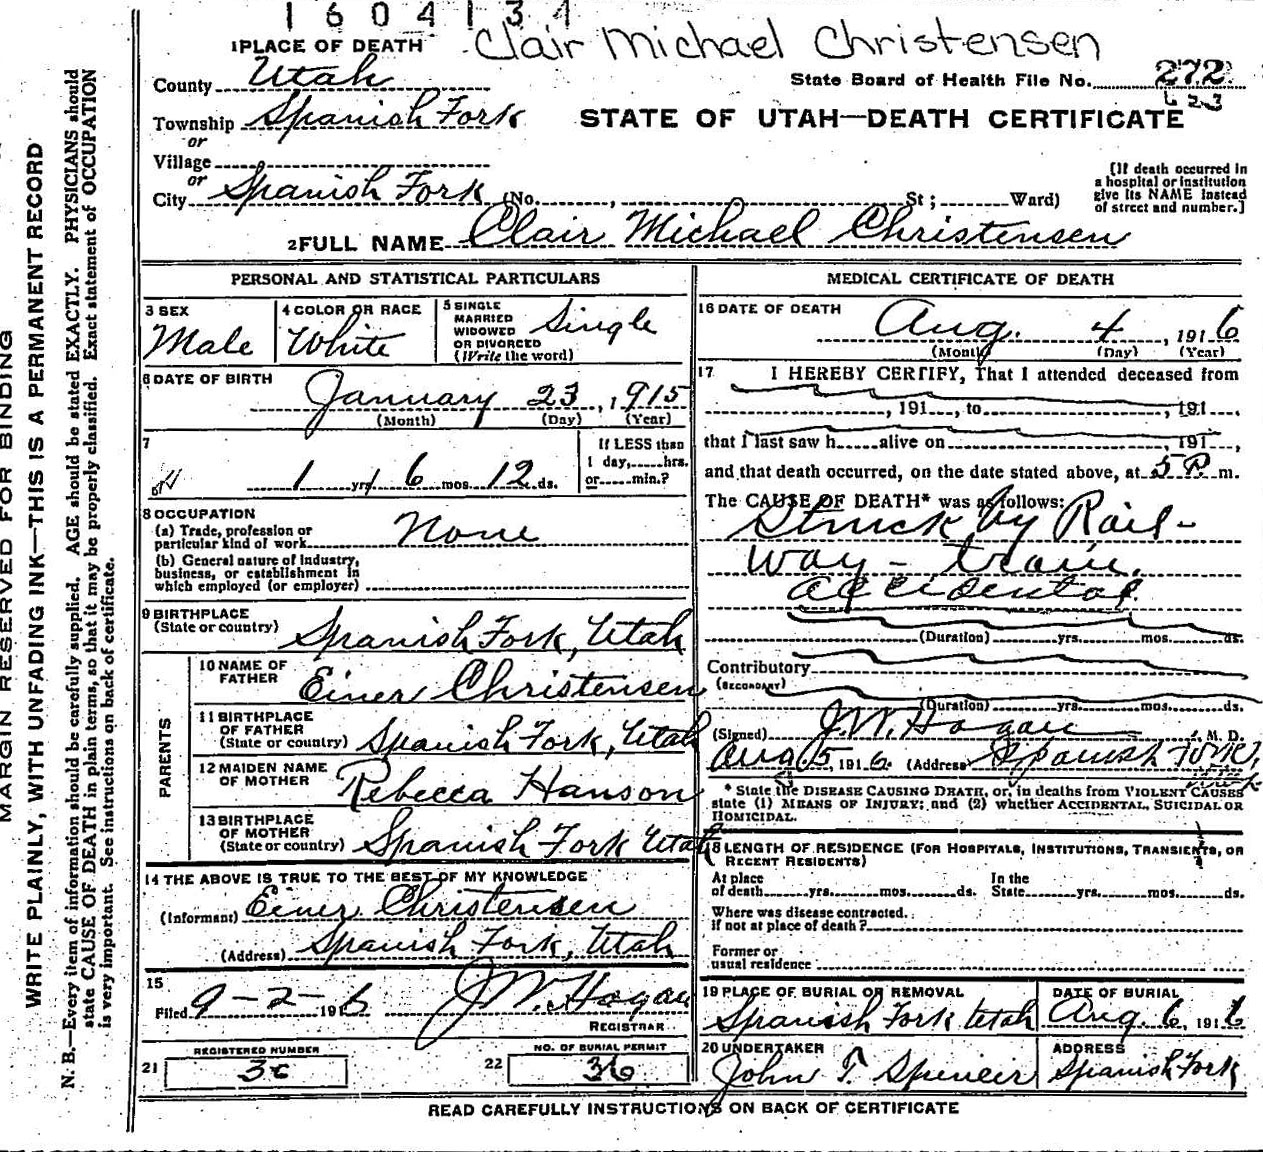 1 6 0 4 1 3 4
Clair Michael Christensen
1 PLACE OF DEATH
County Utah
State Board of Health File No. 272
623
Township Spanish Fork
STATE OF UTAH—DEATH CERTIFICATE
or
Village
or
City Spanish Fork (No. , St; Ward)
[If death occurred in a hospital or institution give its NAME instead of street and number.]
2 FULL NAME Clair Michael Christensen
PERSONAL AND STATISTICAL PARTICULARS
3 SEX
Male
4 COLOR OR RACE
White
5 SINGLE
MARRIED
WIDOWED
OR DIVORCED
(Write the word)
Single
6 DATE OF BIRTH
January 23, 1915
(Month) (Day) (Year)
7
1 yr 6 mos. 12 ds.
If LESS than
1 day, hrs.
or min.?
8 OCCUPATION
(a) Trade, profession or
particular kind of work None
(b) General nature of industry,
business, or establishment in
which employed (or employer)
9 BIRTHPLACE
(State or country) Spanish Fork, Utah
PARENTS
10 NAME OF
FATHER Einer Christensen
11 BIRTHPLACE
OF FATHER
(State or country) Spanish Fork, Utah
12 MAIDEN NAME
OF MOTHER Rebecca Hanson
13 BIRTHPLACE
OF MOTHER
(State or country) Spanish Fork Utah
14 THE ABOVE IS TRUE TO THE BEST OF MY KNOWLEDGE
(Informant) Einer Christensen
(Address) Spanish Fork, Utah
15
Filed 9-2-1916 J.W. Hogan
REGISTRAR
21 REGISTERED NUMBER
22 NO. OF BURIAL PERMIT
36
MEDICAL CERTIFICATE OF DEATH
16 DATE OF DEATH
Aug. 4, 1916
(Month) (Day) (Year)
17 I HEREBY CERTIFY, That I attended deceased from
, 191 , to , 191 ,
that I last saw h alive on , 191 ,
and that death occurred, on the date stated above, at 5 P. m.
The CAUSE OF DEATH* was as follows:
Struck by Rail-
way - train.
accidental
(Duration) yrs. mos. ds.
Contributory
(SECONDARY)
(Duration) yrs. mos. ds.
(Signed) J.W. Hogan, M. D.
Aug 5, 1916. (Address Spanish Fork,
Utah
* State the DISEASE CAUSING DEATH, or, in deaths from VIOLENT CAUSES
state (1) MEANS OF INJURY; and (2) whether ACCIDENTAL, SUICIDAL OR
HOMICIDAL.
18 LENGTH OF RESIDENCE (FOR HOSPITALS, INSTITUTIONS, TRANSIENTS, OR
RECENT RESIDENTS)
At place
of death yrs. mos. ds.
In the
State yrs. mos. ds.
Where was disease contracted.
if not at place of death?
Former or
usual residence
19 PLACE OF BURIAL OR REMOVAL
Spanish Fork Utah
DATE OF BURIAL
Aug. 6, 1916
20 UNDERTAKER
John T
ADDRESS
Spanish Fork
READ CAREFULLY INSTRUCTIONS ON BACK OF CERTIFICATE
MARGIN RESERVED FOR BINDING
WRITE PLAINLY, WITH UNFADING INK—THIS IS A PERMANENT RECORD
N. B.—Every item of information should be carefully supplied. AGE should be stated EXACTLY. PHYSICIANS should
state CAUSE OF DEATH in plain terms, so that it may be properly classified. Exact statement of OCCUPATION
is very important. See instructions on back of certificate.